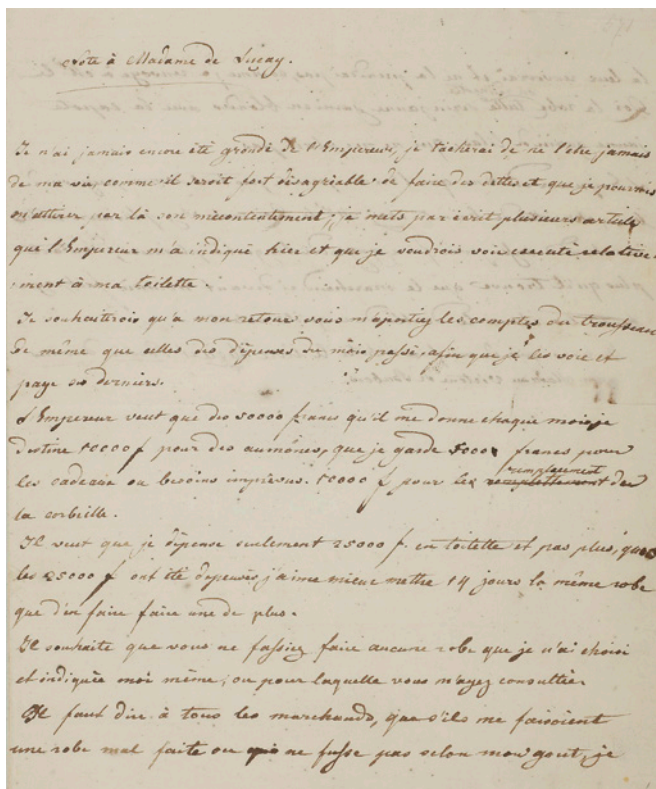 Note à Madame de Luçay.
Je n'ai jamais encore été grondé de l'Empereur, je tacherai de ne l'etre jamais
de ma vie, comme il seroit fort disagréable de faire des dettes et que je pourrois
m'attirer par là son mécontentement; je mets par écrit plusieurs article
que l'Empereur m'a indiqué hier et que je voudrois voir executé relative-
ment à ma toilette.
Je souhaiterois qu'a mon retour vous m'portiez les comptes du trousseau
de même que celles des dépenses du mois passé, afin que je les voie et
paye ces derniers.
L'Empereur veut que des 50000 francs qu'il me donne chaque mois je
destine 10000 f pour des aumônes, que je garde 5000 francs pour
les cadeaux ou besoins imprevus. 10000 f pour les remplacement de
la corbeille.
Il veut que je dépense seulement 25000 f. en toilette et pas plus, quand
les 25000 f ont été depensés j'aime mieux mettre 14 jours la même robe
que d'en faire faire une de plus.
Il souhaite que vous ne fassiez faire aucune robe que je n'ai choisi
et indiquée moi même, ou pour laquelle vous m'ayez consultée.
Il faut dire à tous les marchands, que s'ils me faisoient
une robe mal faite ou qui ne fusse pas selon mon gout, je